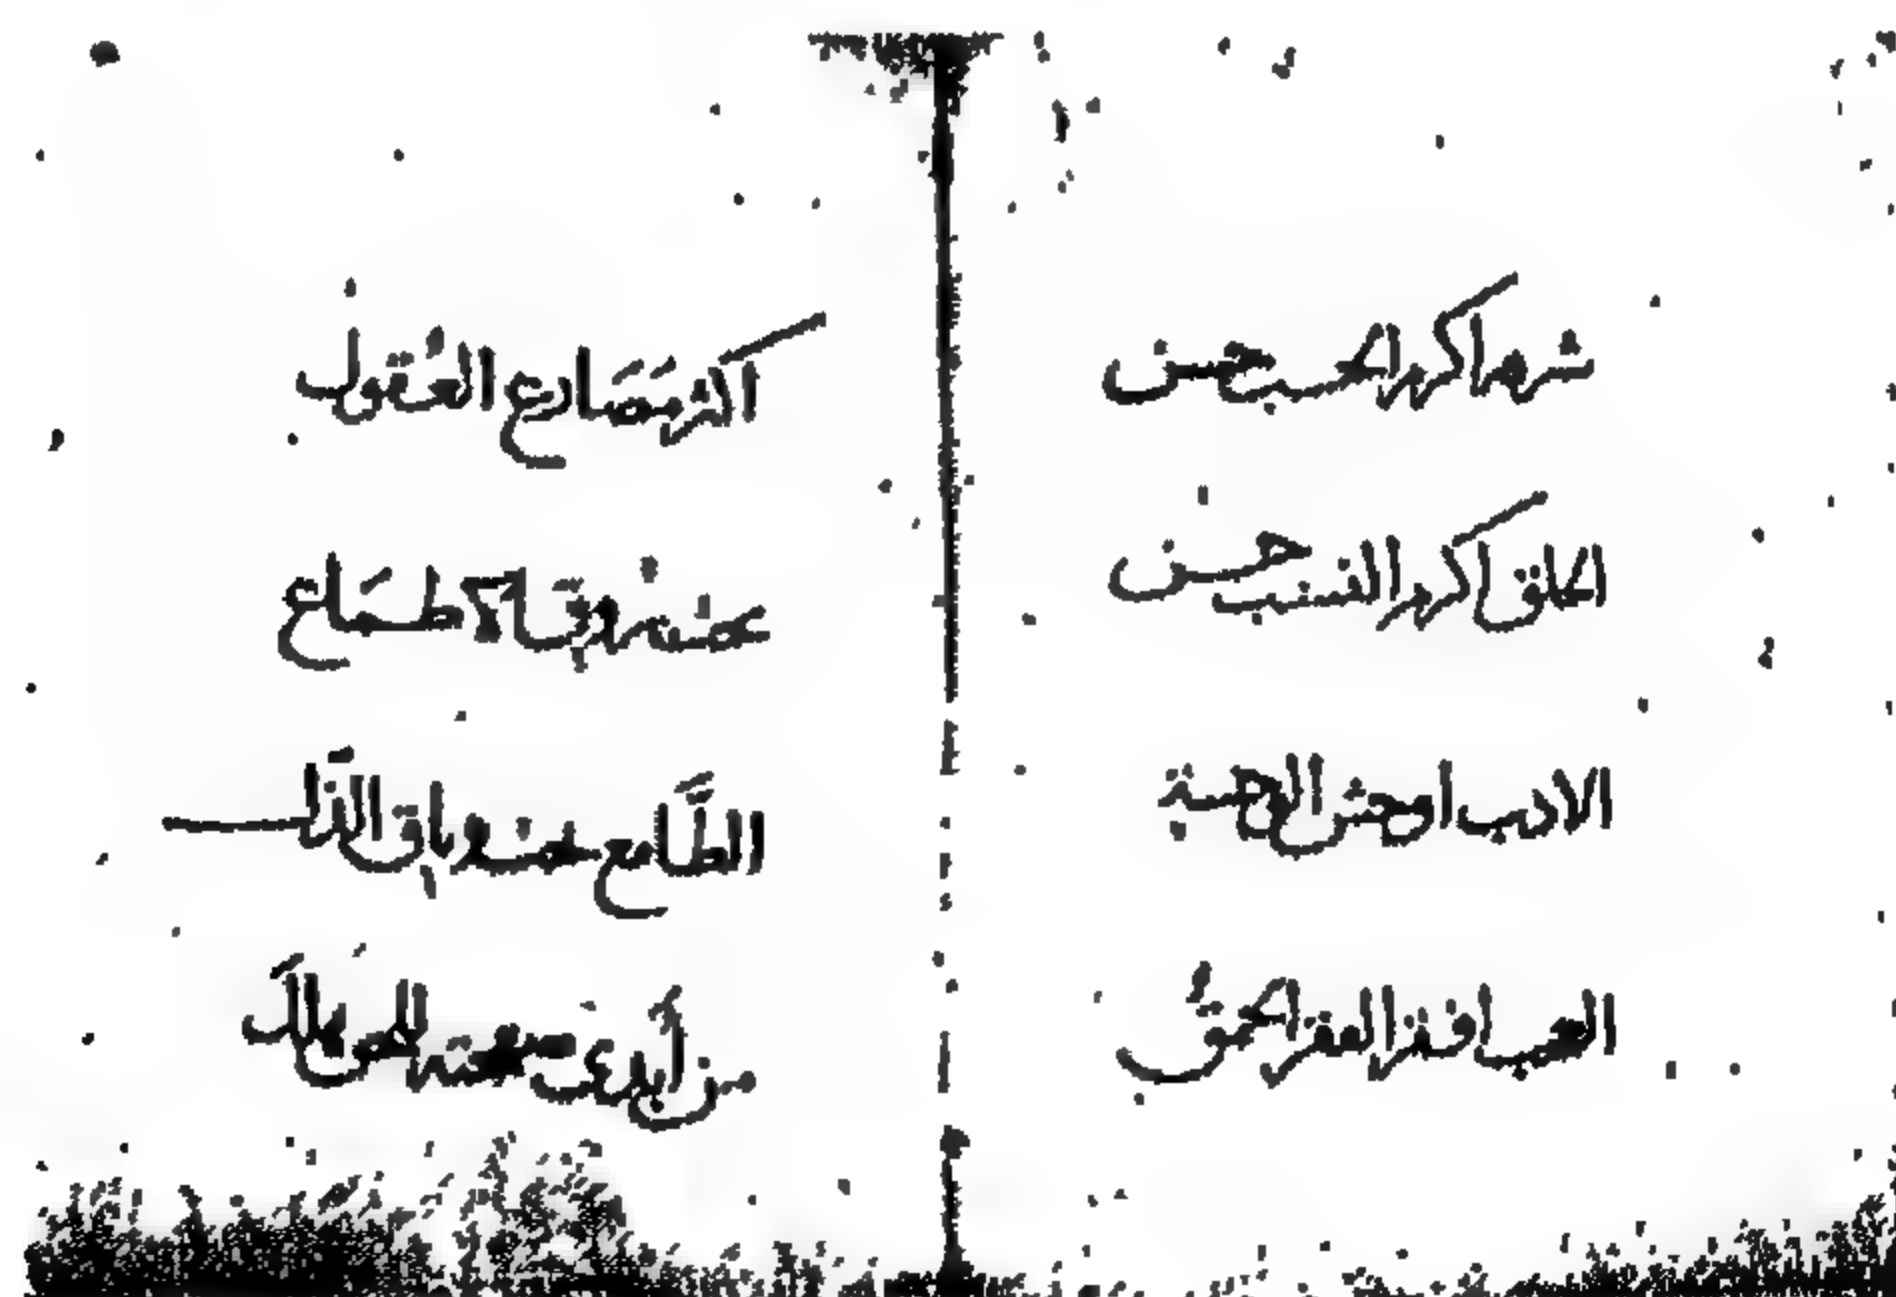 شره اكرم الحسب حسن
الخلق اكرم النسب حسن
الادب اوحش الوحشة
العجب افقر الفقر الحمق
اكثر مصارع العقول
تحت بروق الاطماع
الطامع في وثاق الذل
من أبدى صفحته للحق هلك